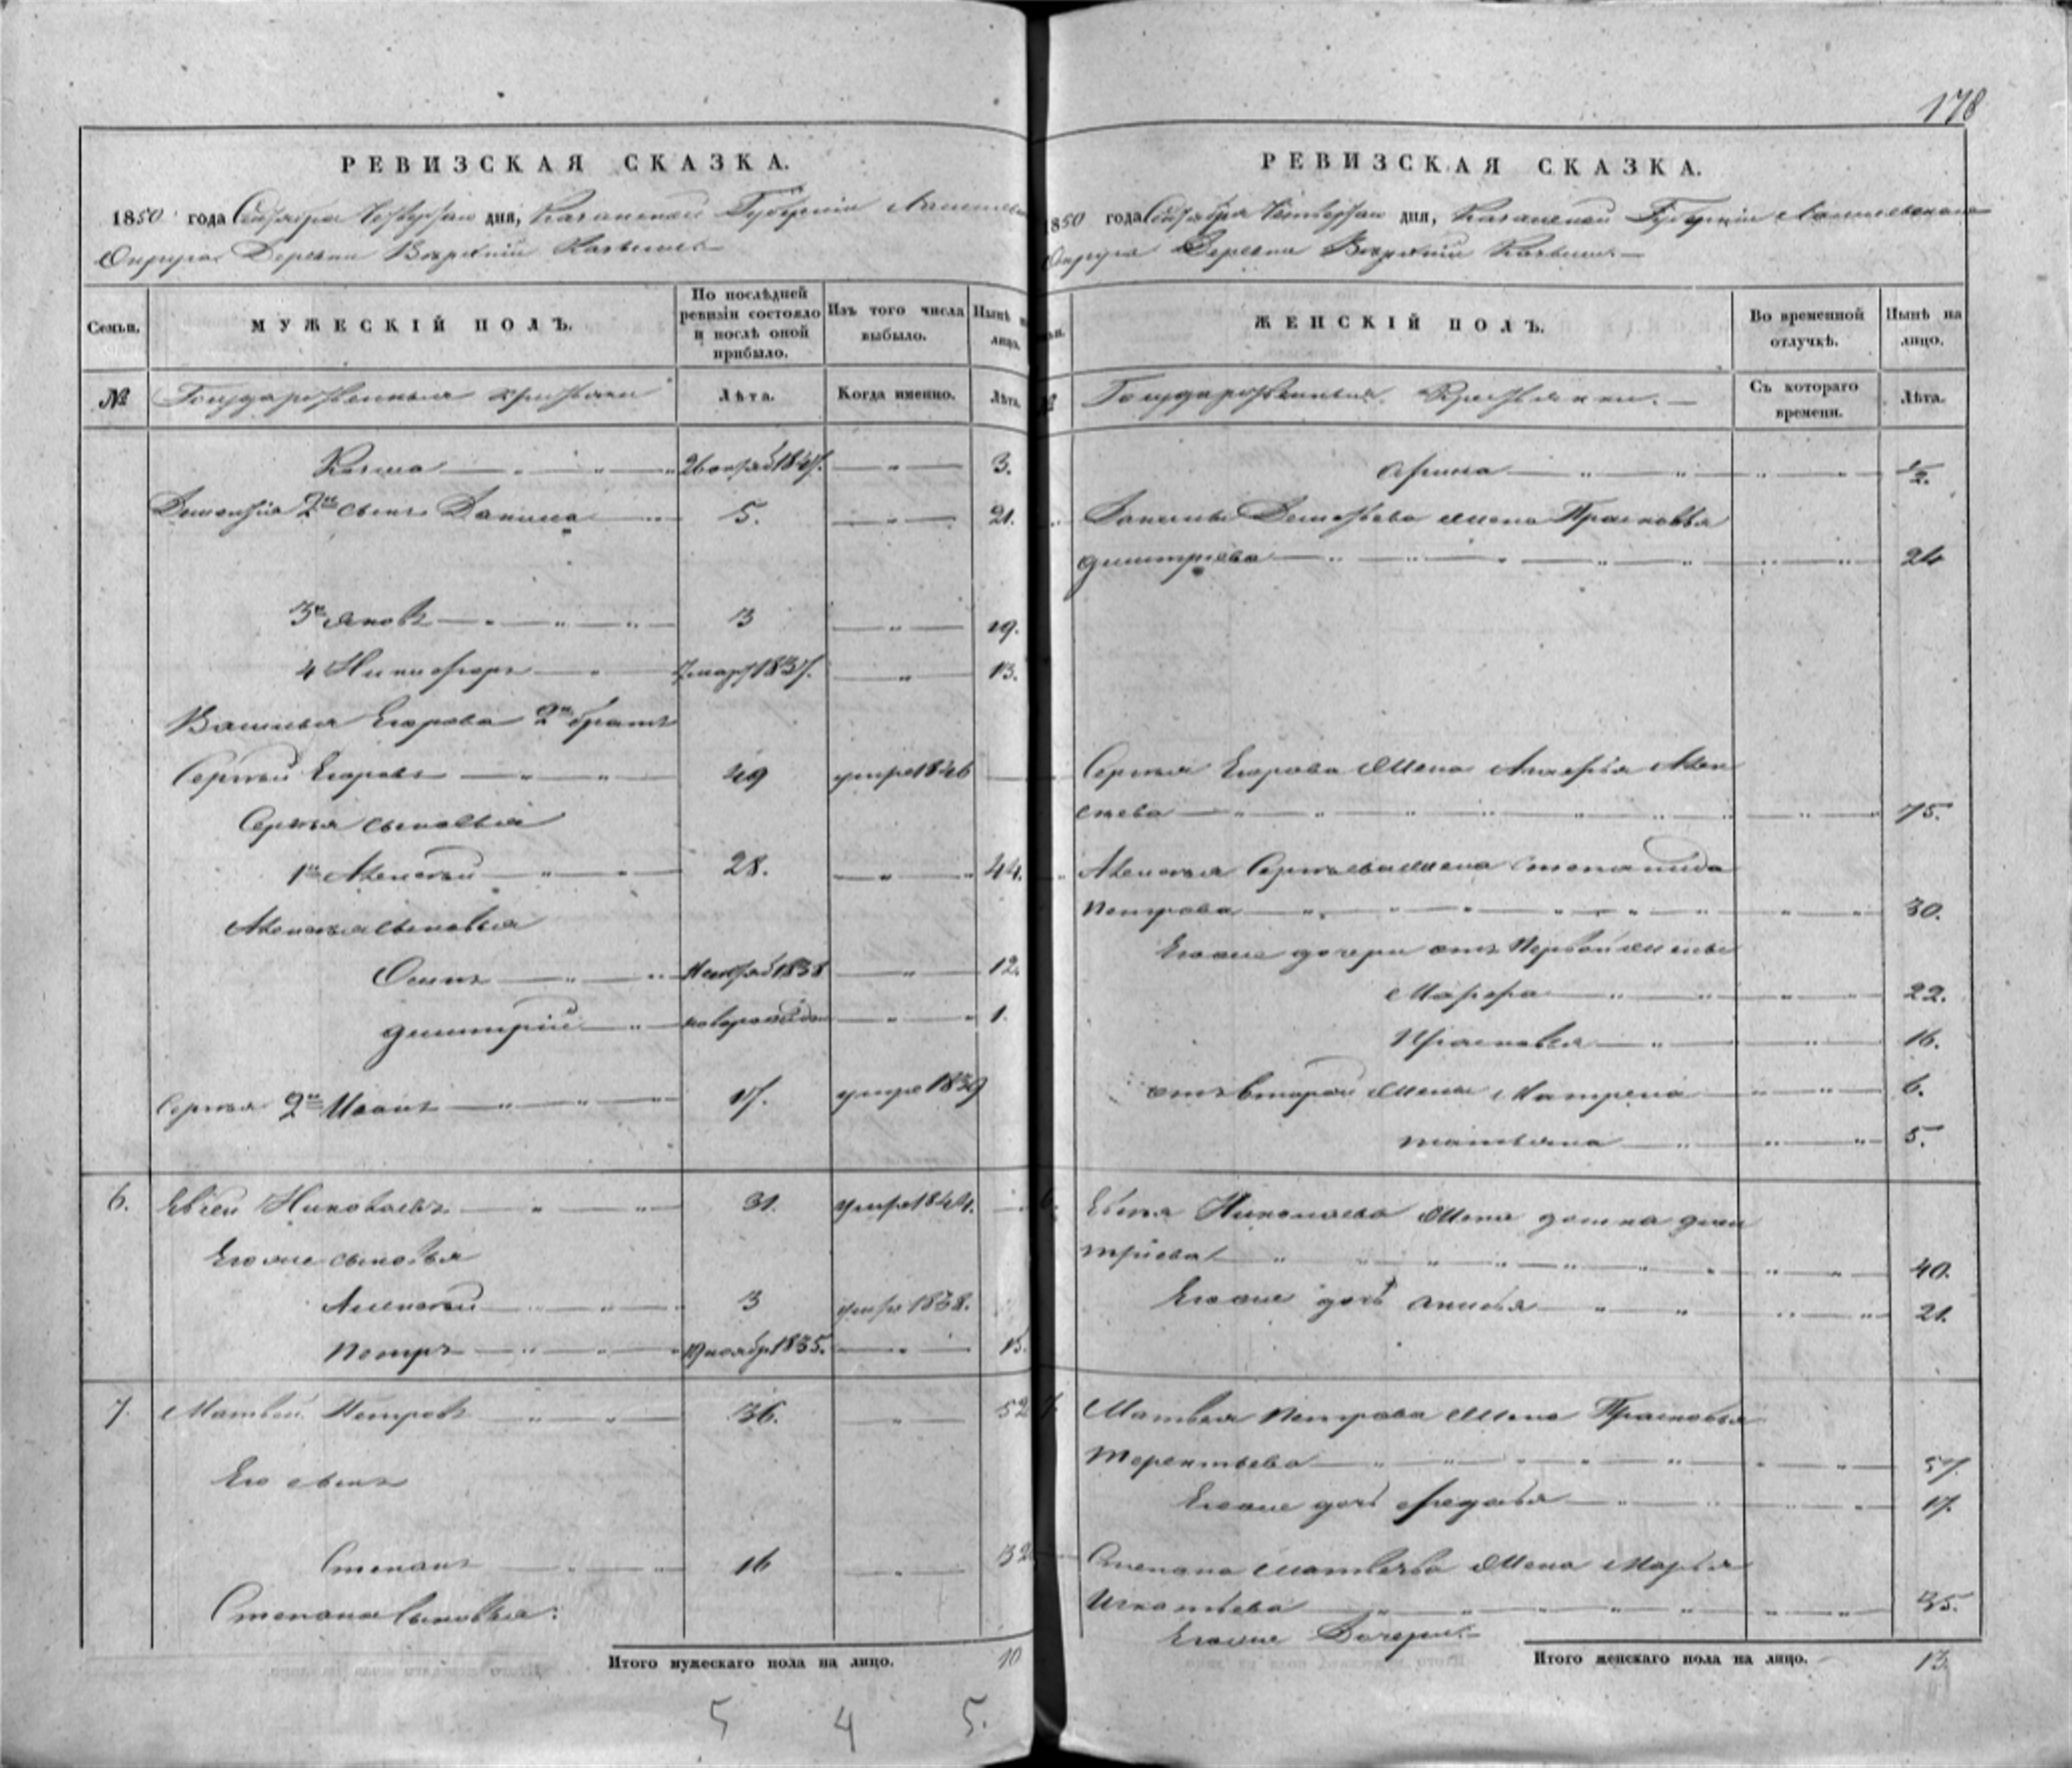 РЕВИЗСКАЯ СКАЗКА.
1850 года Сентября дня, Казанской Губерніи
Округа Деревни Казыли
Семьи. МУЖЕСКІЙ ПОЛЪ. По послѣдней ревизіи состояло и послѣ оной прибыло. Изъ того числа выбыло. Нынѣ на лицо.
№ Государственныя крестьяни Лѣта. Когда именно. Лѣта.
Козма 1847. 3.
Дементія 2й сынъ Данила 5. 21.
3й Яковъ 3 19.
4 Никифоръ 7 март 1837. 13.
Василья Егорова 2й братъ
Сергѣй Егоровъ 49 умре 1846
Сергѣя сыновья
1й Алексѣй 28. 44.
Алексѣя сыновья
Осипъ 1838 12.
Димитрій новорожден 1.
Сергѣя 2й Иванъ 17. умре 1839
6. Евсей Николаевъ 31. умре 1844.
Его же сыновья
Алексѣй 3 умре 1838.
Петръ 19 ноябр 1835. 15.
7. Матвей Петровъ 36. 52
Его сынъ
Степанъ 16 32
Степана сыновья:
Итого мужескаго пола на лицо. 10
5 4 5.
178
РЕВИЗСКАЯ СКАЗКА.
1850 года Сентября дня, Казанской Губерніи Лаишевскаго
Округа Деревни Казыли
Семьи. ЖЕНСКІЙ ПОЛЪ. Во временной отлучкѣ. Нынѣ на лицо.
№ Государственныя Крестьянки. Съ котораго времени. Лѣта.
Арина 1/2.
Данилы Дементьева жена Прасковья
Димитриева 24
Сергѣя Егорова жена Алек
сѣева 75.
Алексѣя Сергѣева жена Степанида
Петрова 30.
Его же дочери отъ первой жены
Марфа 22.
Прасковья 16.
отъ второй жены Матрена 6.
Татьяна 5.
6. Евсея Николаева жена Домна Дими
тріева 40.
Его же дочь Анисья 21.
7. Матвея Петрова жена Прасковья
Терентьева 57.
Его же дочь Федосья 17.
Степана Матвеева жена Марья
Игнатьева 35.
Его же Дочери
Итого женскаго пола на лицо. 13.